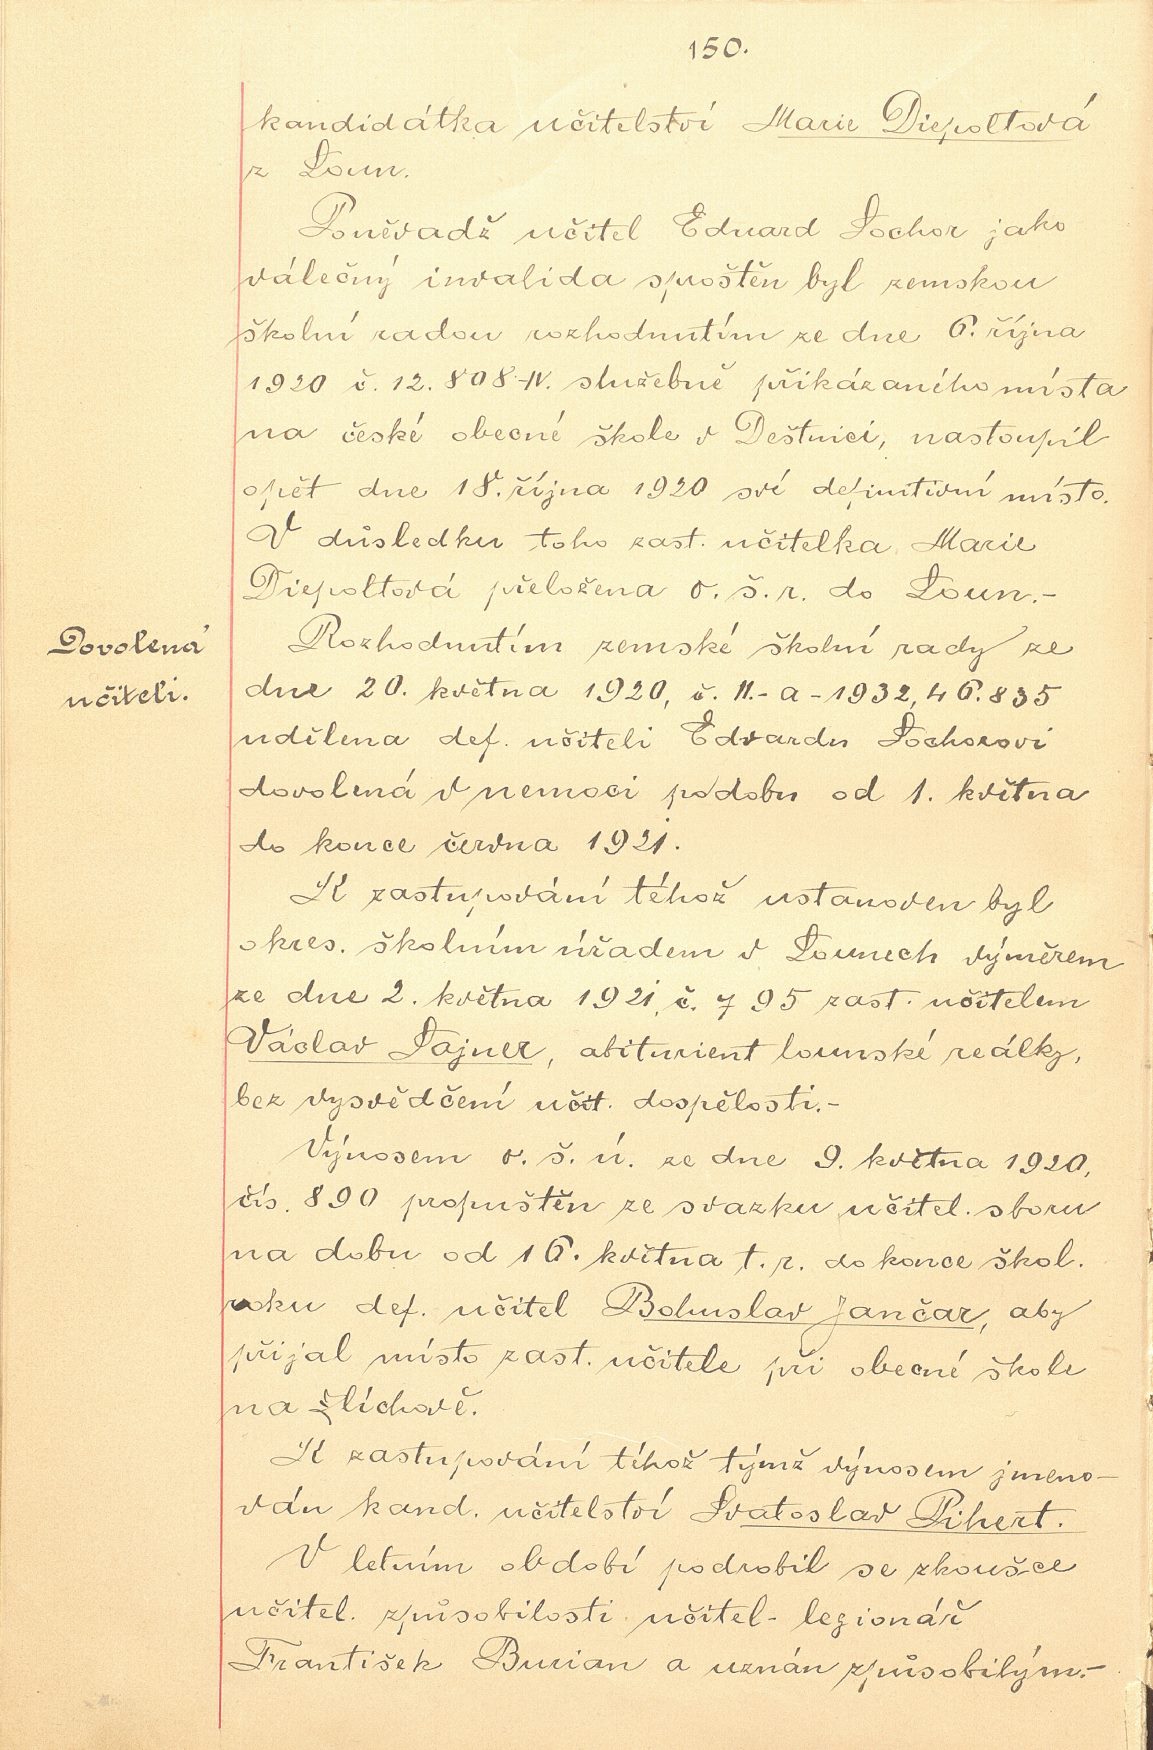 150.
kandidátka učitelství Marie Diepoltová
z Loun.
Poněvadž učitel Eduard Lochor jako
válečný invalida sproštěn byl zemskou
školní radou rozhodnutím ze dne 6. října
1920 č. 12.808-IV. služebně přikázaného místa
na české obecné škole v Deštnici, nastoupil
opět dne 18. října 1920 své definitivní místo.
V důsledku toho zast. učitelka Marie
Diepoltová přeložena o. š. r. do Loun.-
Dovolená
učiteli.
Rozhodnutím zemské školní rady ze
dne 20. května 1920, č. II.-a-1932, 46.835
udělena def. učiteli Edvardu Lochorovi
dovolená v nemoci po dobu od 1. května
do konce června 1921.
K zastupování téhož ustanoven byl
okres. školním úřadem v Lounech výměrem
ze dne 2. května 1921, č. 795 zast. učitelem
Václav Lajner, abiturient lounské reálky,
bez vysvědčení učit. dospělosti.-
Výnosem o. š. ú. ze dne 9. května 1920,
čís. 890 propuštěn ze svazku učitel. sboru
na dobu od 16. května t. r. do konce škol.
roku def. učitel Bohuslav Jančar, aby
přijal místo zast. učitele při obecné škole
na Zlíchově.
K zastupování téhož týmž výnosem jmeno-
ván kand. učitelství Svatoslav Pihert.
V letním období podrobil se zkoušce
učitel. způsobilosti učitel- legionář
František Burian a uznán způsobilým.-